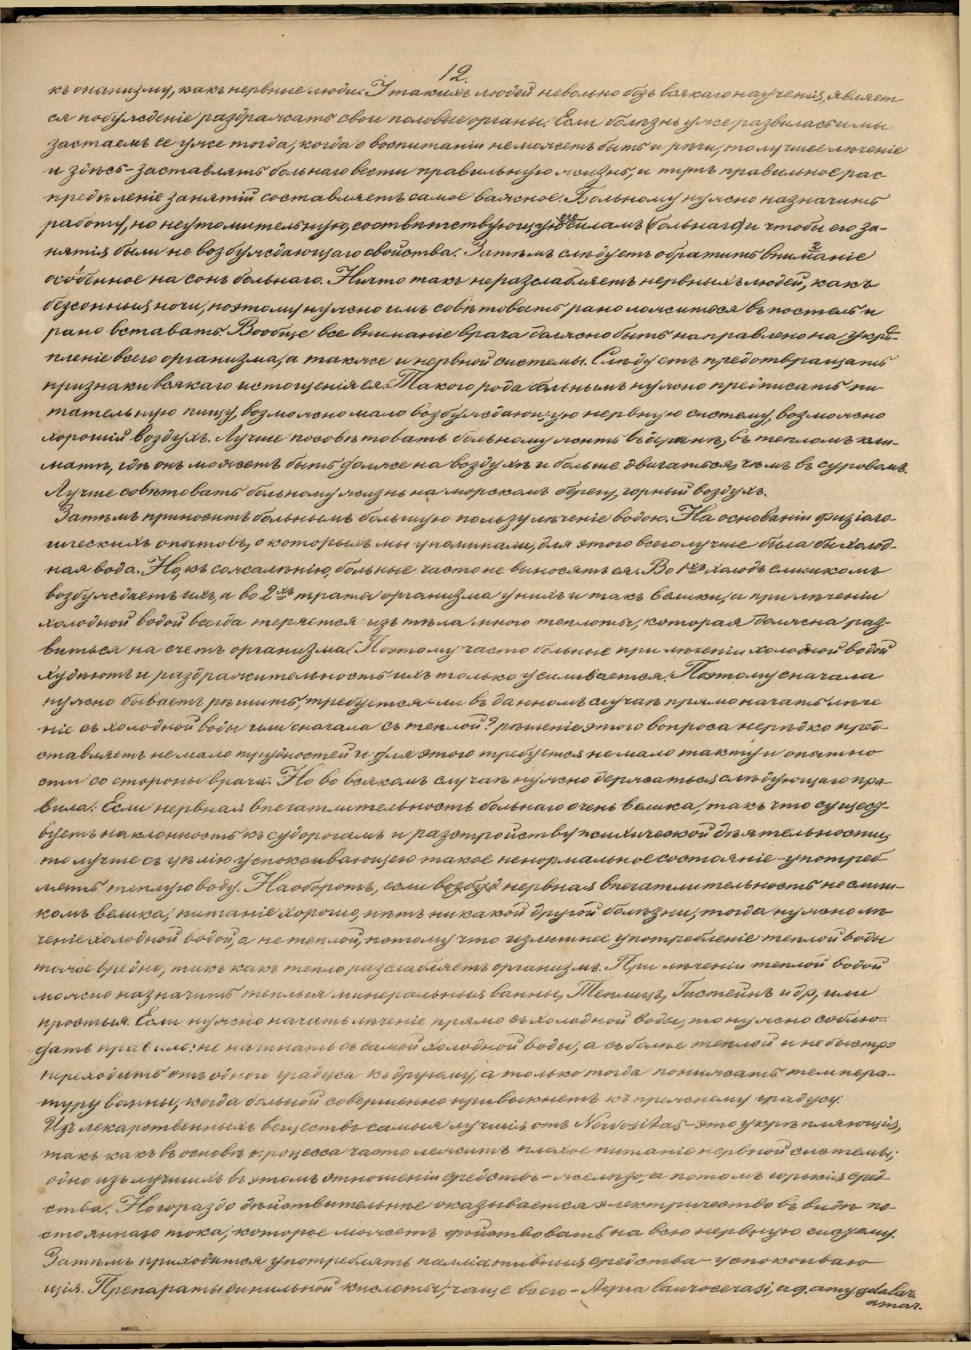 12.
къ онанизму, какъ нервные люди. У такихъ людей невольно безъ всякаго наученія, являет-
ся побужденіе раздражать свои половые органы. Если болѣзнь уже развилась и мы
застаемъ ее уже тогда, когда о воспитаніи не можетъ быть и рѣчи, то лучшее лѣченіе
и здѣсь - заставлять больнаго вести правильную жизнь, и тутъ правильное рас-
предѣленіе занятій составляетъ самое важное. Больному нужно назначить
работу, но неутомительную, соотвѣтствующую его силамъ (больнаго) и чтобы его за-
нятія были не возбуждающаго свойства. Затѣмъ слѣдуетъ обратить вниманіе
особенное на сонъ больнаго. Ничто такъ не разслабляетъ нервныхъ людей, какъ
безсонныя ночи, поэтому нужно имъ совѣтовать рано ложиться въ постель и
рано вставать. Вообще все вниманіе врача должно быть направлено на укрѣ-
пленіе всего организма, а также и нервной системы. Слѣдуетъ предотвращать
признаки всякаго истощенія ея. Такого рода больнымъ нужно предписать пи-
тательную пищу, возможно мало возбуждающую нервную систему, возможно
хорошій воздухъ. Лучше посовѣтовать больному жить въ деревнѣ, въ тепломъ кли-
матѣ, гдѣ онъ можетъ быть дольше на воздухѣ и больше двигаться, чѣмъ въ суровомъ.
Лучше совѣтовать больному жизнь на морскомъ берегу, горный воздухъ.
Затѣмъ приноситъ больнымъ большую пользу лѣченіе водою. На основаніи физіоло-
гическихъ опытовъ, о которыхъ мы упоминали, для этого всего лучше была бы холод-
ная вода. Но, къ сожалѣнію, больные часто не выносятъ ея. Во 1хъ холодъ слишкомъ
возбуждаетъ ихъ, а во 2хъ траты организма у нихъ и такъ велики, а при лѣченіи
холодной водой всегда теряется изъ тѣла много теплоты, которая должна раз-
виться на счетъ организма. Поэтому часто больные при лѣченіи холодной водой
худѣютъ и раздражительность ихъ только усиливается. Поэтому сначала
нужно бываетъ рѣшить, требуется-ли въ данномъ случаѣ прямо начать лѣче-
ніе съ холодной воды или сначала съ теплой? рѣшеніе этого вопроса нерѣдко пред-
ставляетъ не мало трудностей и для этого требуется не мало такту и опытно-
сти со стороны врача. Но во всякомъ случаѣ нужно держаться слѣдующаго пра-
вила: Если нервная впечатлительность больнаго очень велика, такъ что сущест-
вуетъ наклонность къ судорогамъ и разстройству психической дѣятельности,
то лучше съ цѣлію успокоивающею такое ненормальное состояніе - употреб-
лять теплую воду. Наоборотъ, если нервная впечатлительность не слиш-
комъ велика, питаніе хорошо, нѣтъ никакой другой болѣзни, тогда нужно лѣ-
ченіе холодной водой, а не теплой, потому что излишнее употребленіе теплой воды
тоже вредно, такъ какъ тепло разслабляетъ организмъ. При лѣченіи теплой водой
можно назначить теплыя минеральныя ванны, Теплицъ, Гастейнъ и др, или
простыя. Если нужно начать лѣченіе прямо съ холодной воды, то нужно соблю-
дать правило: не начинать съ самой холодной воды, а съ болѣе теплой и не быстро
переходить отъ одного градуса къ другому, а только тогда понижать темпера-
туру ванны, когда больной совершенно привыкнетъ къ прежнему градусу.
Изъ лекарственныхъ веществъ самыя лучшія отъ Nervositas - это укрѣпляющія,
такъ какъ въ основѣ процесса часто лежитъ плохое питаніе нервной системы;
одно изъ лучшихъ въ этомъ отношеніи средствъ - желѣзо, а потомъ горькія сред-
ства. Но гораздо дѣйствительнѣе оказывается электричество въ видѣ по-
стояннаго тока, которое можетъ дѣйствовать на всю нервную систему.
Затѣмъ приходится употреблять палліативныя средства - успокоиваю-
щія. Препараты синильной кислоты, чаще всего - Aqua laurocerasi, aq. amygdalar.
amar.